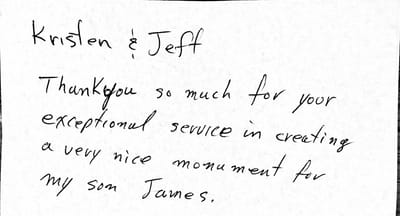 Kristen & Jeff
Thankyou so much for your
exceptional service in creating
a very nice monument for
my son James.